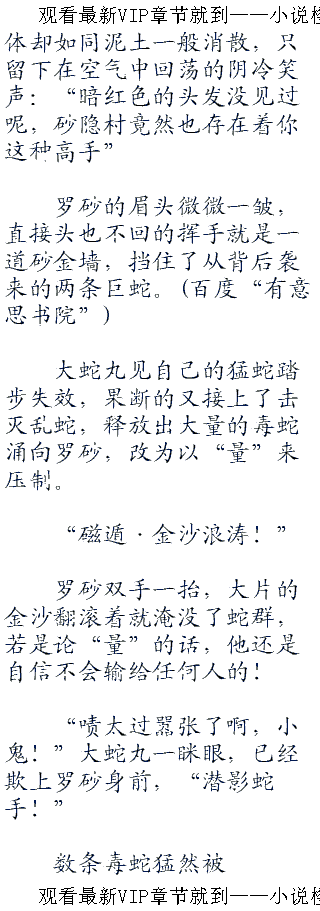 观看最新VIP章节就到——小说楼
体却如同泥土一般消散，只
留下在空气中回荡的阴冷笑
声：“暗红色的头发没见过
呢，砂隐村竟然也存在着你
这种高手”
罗砂的眉头微微一皱，
直接头也不回的挥手就是一
道砂金墙，挡住了从背后袭
来的两条巨蛇。(百度“有意
思书院”)
大蛇丸见自己的猛蛇踏
步失效，果断的又接上了击
灭乱蛇，释放出大量的毒蛇
涌向罗砂，改为以“量”来
压制。
“磁遁·金沙浪涛！”
罗砂双手一抬，大片的
金沙翻滚着就淹没了蛇群，
若是论“量”的话，他还是
自信不会输给任何人的！
“啧太过嚣张了啊，小
鬼！”大蛇丸一眯眼，已经
欺上罗砂身前，“潜影蛇
手！”
数条毒蛇猛然被
观看最新VIP章节就到——小说